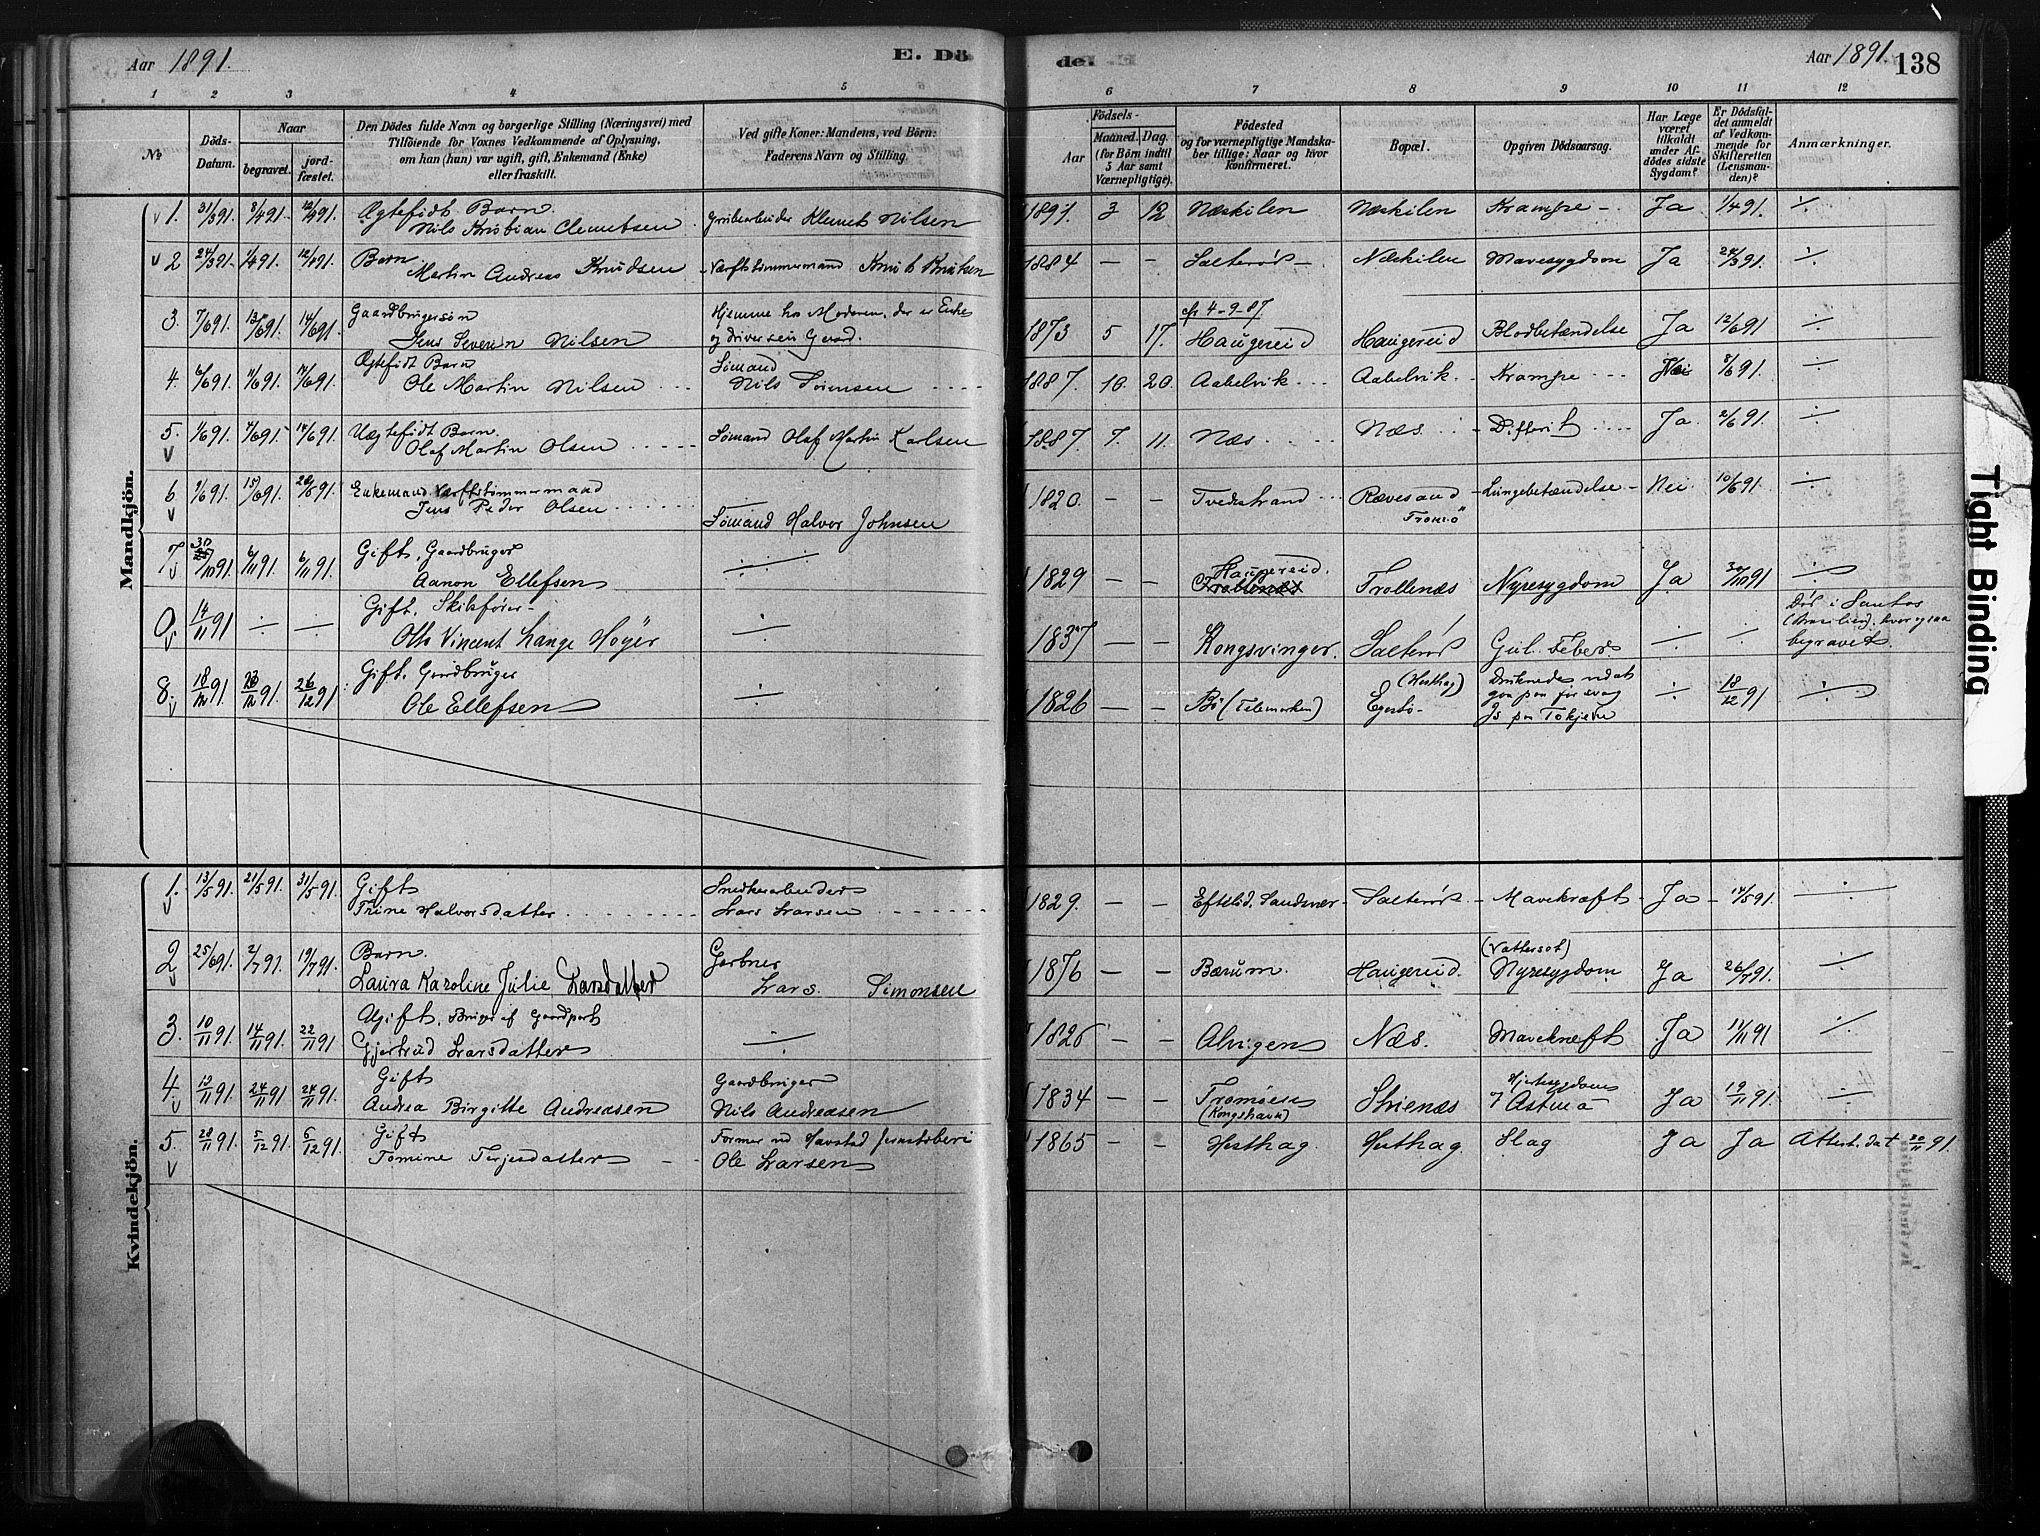 Aar 1891. E. Dö
de. Aar 1891. 138
1 2 3 4 5 6 7 8 9 10 11 12
№
Döds-
Datum.
Naar
begravet.
jord-
fæstet.
Den Dödes fulde Navn og borgerlige Stilling (Næringsvei) med
Tilföiende for Voxnes Vedkommende af Oplysning,
om han (hun) var ugift, gift, Enkemand (Enke)
eller fraskilt.
Ved gifte Koner: Mandens, ved Börn:
Faderens Navn og Stilling.
Födsels-
Aar
Maaned. Dag.
(for Börn indtil
5 Aar samt
Værnepligtige).
Födested
og for værnepligtige Mandska-
ber tillige: Naar og hvor
konfirmeret.
Bopæl.
Opgiven Dödsaarsag.
Har Læge
været
tilkaldt
under Af-
dödes sidste
Sygdom?
Er Dödsfal-
det anmeldt
af Vedkom-
mende for
Skifteretten
(Lensman-
den)?
Anmærkninger.
Mandkjön.
1. 31/3 91. 8/4 91. 12/4 91. Ægtefødt Barn
Nils Kristian Clemetsen Grubearbeider Klemet Nilsen 1891 3 12 Næskilen Næskilen Krampe Ja 1/4 91. ÷
2 24/3 91. 1/4 91. 12/4 91. Barn
Martin Andreas Knudsen Værftstømmermand Knut Knutsen 1884 — — Salterös Næskilen Mavesygdom Ja 24/3 91. ÷
3. 7/6 91. 13/6 91. 14/6 91. Gaardbrugersøn
Jens Severin Nilsen Hjemme hos Moderen, der er Enke
og driver sin Gaard. 1873 5 17. cfr 4-9-87.
Haugereid Haugereid Blodbetændelse Ja 12/6 91 ÷
4. 6/6 91. 11/6 91. 14/6 91. Ægtefødt Barn
Ole Martin Nilsen Sømand
Nils Sörensen 1887. 10. 20. Aabelvik Aabelvik Krampe Nei 8/6 91. ÷
5. 1/6 91. 4/6 91. 14/6 91. Uægtefødt Barn.
Olaf Martin Olsen Sømand Olaf Martin Karlsen 1887. 7. 11. Næs Næs Difterit Ja 2/6 91. ÷
6 9/6 91. 15/6 91. Enkemand. Værftstømmermand
Jens Peder Olsen 1820. — — Tvedestrand Rævesand
Tromø Lungebetændelse Nei 10/6 91. ÷
Sømand Halvor Johnsen
7 30/10 91. 6/11 91. 6/11 91. Gift, Gaardbruger
Aanon Ellefsen ÷ 1829 — — Haugereid.
Trollenæs Trollenæs Nyresygdom Ja 30/10 91 ÷
0 14/11 91 ÷ ÷ Gift, Skibsfører
Otto Vincent Lange Høyer ÷ 1837 — — Kongsvinger. Salterös Gul Feber ÷ ÷ Död i Santos
(Brasilien), hvor ogsaa
begravet.
8. 18/12 91 23/12 91 26/12 91 Gift, Gaardbruger
Ole Ellefsen ÷ 1826 — — Bø (Telemarken) (Hesthag)
Egesbö Druknede ved at
gaa paa for svag
Is paa Tokjern ÷ 18/12 91 ÷
Kvindekjön.
1. 13/5 91. 21/5 91. 31/5 91. Gift
Trine Halvorsdatter Snedkerarbeider
Lars Larsen 1829. — — Eftelöd, Sandsvær Salterös Mavekræft Ja 14/5 91. ÷
2 25/6 91. 2/7 91. 19/7 91. Barn.
Laura Karoline Julie Larsdatter Garbner
Lars Simonsen 1876 — — Bærum. Haugereid. (Vattersot)
Nyresygdom Ja ÷
3. 10/11 91. 14/11 91. 22/11 91 Ugift, Bruger af Gaardpart
Gjertrud Larsdatter ÷ 1826 — — Alvigen Næs. Mavekræft Ja 11/11 91 ÷
4. 13/11 91. 24/11 91 24/11 91. Gift
Andrea Birgitte Andreasen Gaardbruger
Nils Andreasen 1834 — — Tromöen
(Kongshavn) Skienæs Hjertesygdom
& Astma Ja 19/11 91 ÷
5. 28/11 91. 5/12 91. 6/12 91. Gift
Tomine Terjesdatter Former ved Havstad Jernstøberi
Ole Larsen 1865 — — Hesthag Hesthag. Slag Ja Ja Attest. dat 30/11 91.
Tight Binding